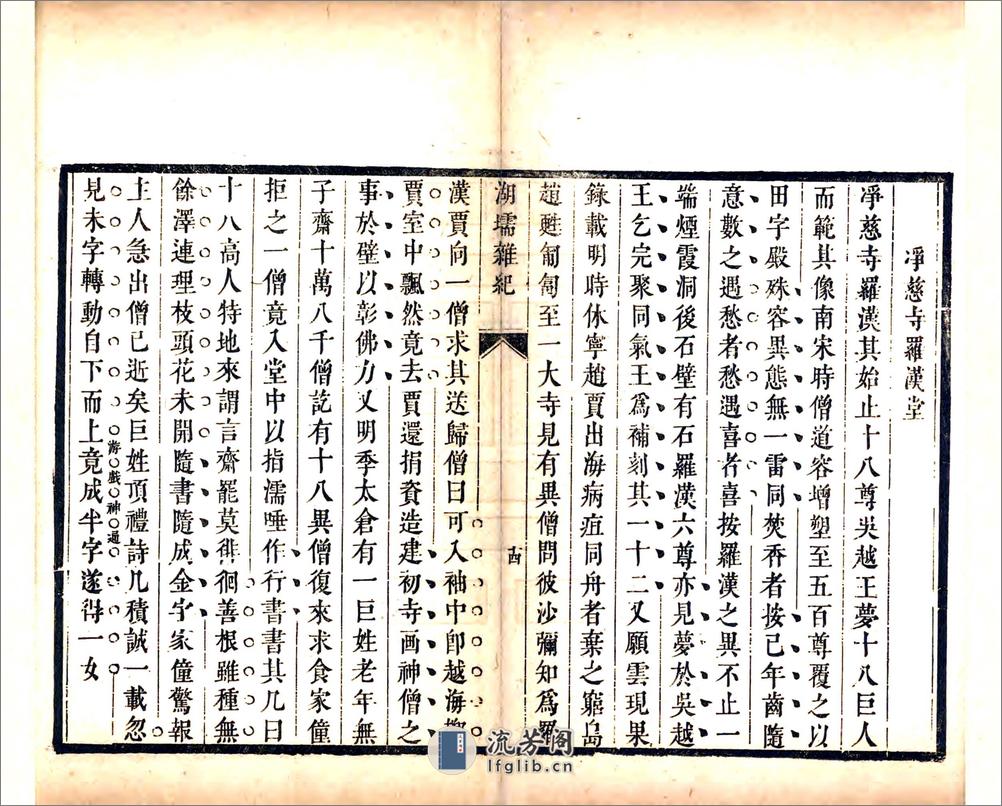 凈慈寺羅漢堂
凈慈寺羅漢其始止十八尊吳越王夢十八巨人
而範其像南宋時僧道容增塑至五百尊覆之以
田字殿殊容異態無一雷同焚香者按己年齒隨
意數之遇愁者愁遇喜者喜按羅漢之異不止一
端煙霞洞後石壁有石羅漢六尊亦見夢於吳越
王乞完聚同氣王爲補刻其一十二又願雲現果
錄載明時休寧趙賈出海病疽同舟者棄之窮島
趙甦匍匐至一大寺見有異僧問彼沙彌知爲羅
湖壖雜紀
十四
漢賈向一僧求其送歸僧曰可入袖中卽越海抛
賈室中飄然竟去賈還捐資造建初寺画神僧之
事於壁以彰佛力又明季太倉有一巨姓老年無
子齋十萬八千僧訖有十八異僧復來求食家僮
拒之一僧竟入堂中以指濡唾作行書書其几曰
十八高人特地來謂言齋罷莫徘徊善根雖種無
餘澤連理枝頭花未開隨書隨成金字家僮驚報
主人急出僧已逝矣巨姓頂禮詩几積誠一載忽
見未字轉動自下而上竟成半字遂得一女
游戲神通
流芳閣
lfglib.cn